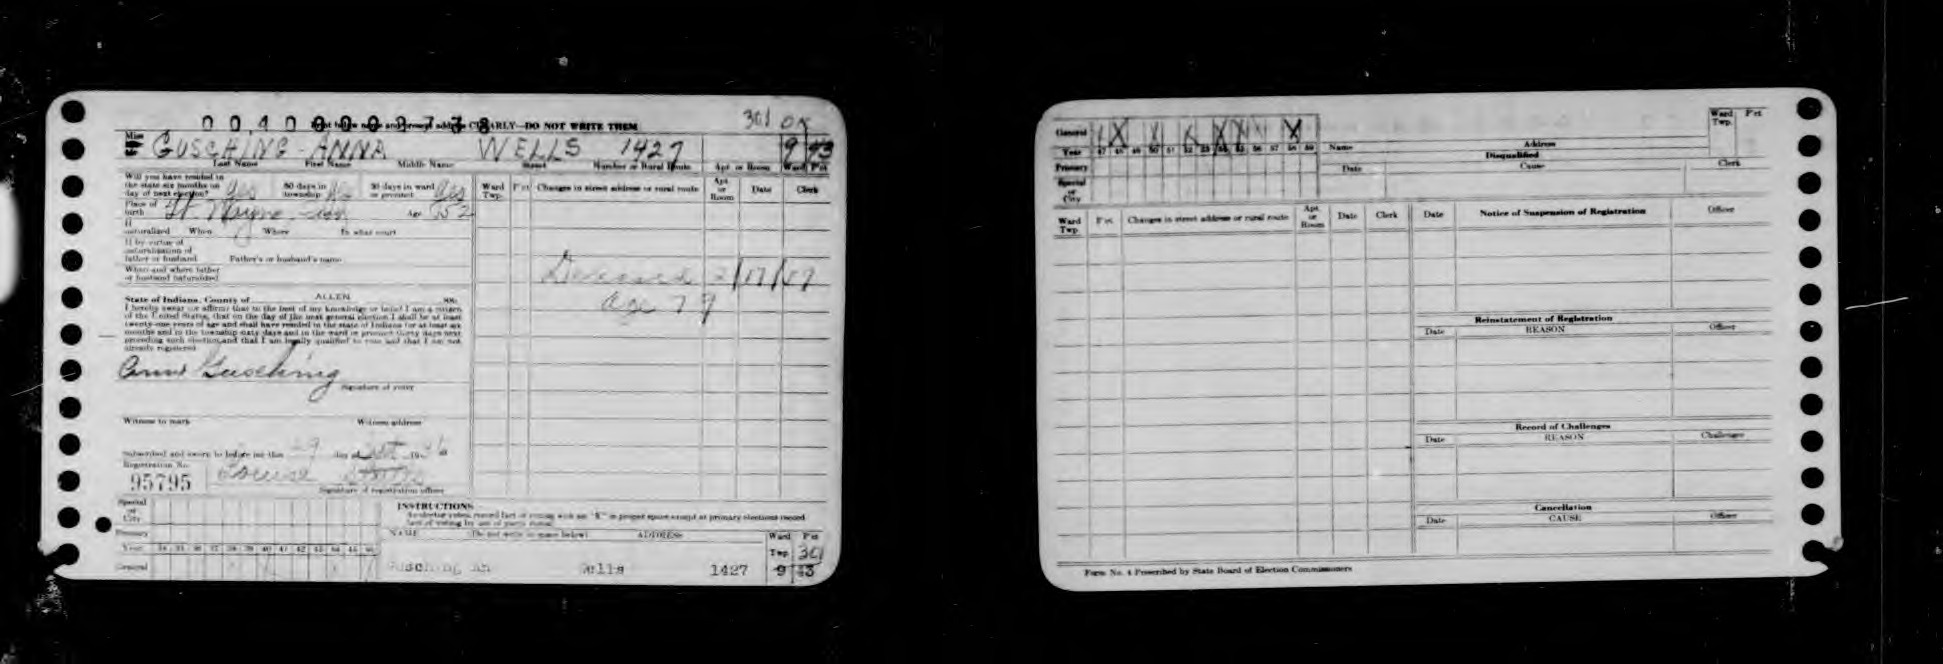 301
CLEARLY—DO NOT WRITE THEM
Miss GUSCHING - ANNA WELLS 1427 9 43
Last Name First Name Middle Name Street Number or Rural Route Apt or Room Ward Pct
Will you have resided in
the state six months on
day of next election? Yes 60 days in township 30 days in ward or precinct Yes
Ward Twp. Pct Changes in street address or rural route Apt. or Room Date Clerk
Place of birth Ft. Wayne Age 52
If naturalized When Where In what court
If by virtue of
naturalization of
father or husband Father's or husband's name
When and where father
or husband naturalized
Deceased 2/17/57
age 79
State of Indiana, County of ALLEN
I hereby swear (or affirm) that to the best of my knowledge or belief I am a citizen
of the United States, that on the day of the next general election I shall be at least
twenty-one years of age and shall have resided in the state of Indiana for at least six
months and in the township sixty days and in the ward or precinct thirty days next
preceding such election, and that I am legally qualified to vote and that I am not
already registered.
Anna Gusching
Signature of voter
Witness to mark Witness address
Subscribed and sworn to before me this 29 day of
Registration No.
95795 Louise
Signature of registration officer
Special or City
Primary
Year 34 35 36 37 38 39 40 41 42 43 44 45 46
General
INSTRUCTIONS
NAME (Do not write in space below) ADDRESS Ward Twp. Pct 301
Gusching An Wells 1427 9 43
General
Year 47 48 49 50 51 52 53 54 55 56 57 58 59
Primary
Special or City
Name Address
Ward Twp. Pct
Disqualified
Date Cause Clerk
Ward Twp. Pct Changes in street address or rural route Apt. or Room Date Clerk
Date Notice of Suspension of Registration Officer
Reinstatement of Registration
Date REASON Officer
Record of Challenges
Date REASON Challenger
Cancellation
Date CAUSE Officer
Form No. 4 Prescribed by State Board of Election Commissioners